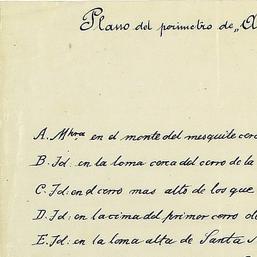 Plano del perimetro de „A
A. Mhra en el monte del mesquite cerc
B. Id. en la loma cerca del cerro de la
C. Id: en el cerro mas alto de los que
D. Id: en la cima del primor cerro de
E. Id: en la loma alta de Santa